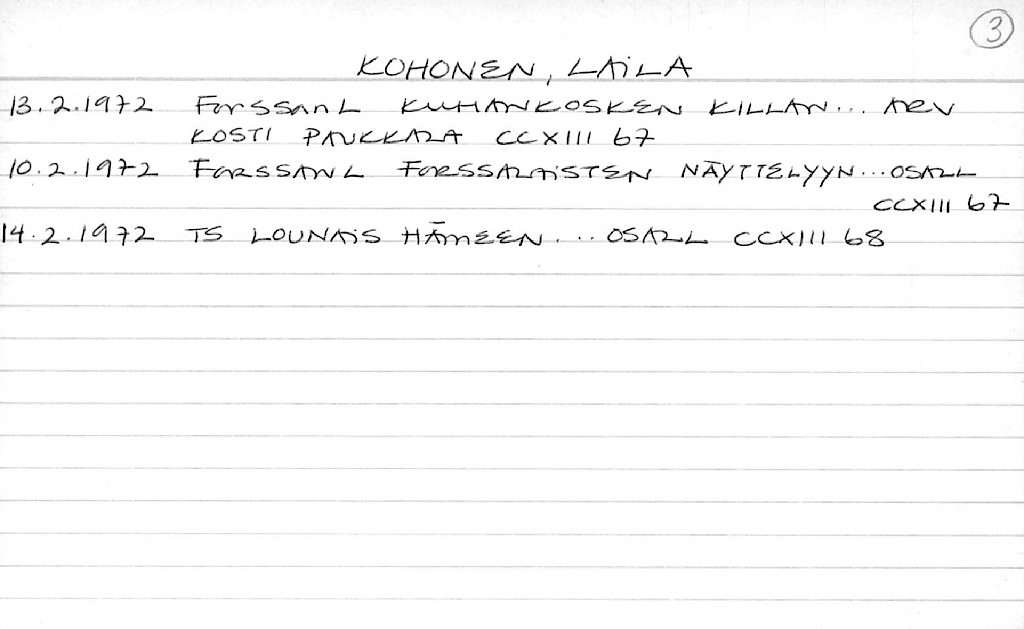 3
KOHONEN, LAILA
13.2.1972 FORSSAN L KUHANKOSKEN KILLAN... ARV
KOSTI PAUKKALA CCXIII 67
10.2.1972 FORSSAN L FORSSALAISTEN NÄYTTELYYN... OSALL
CCXIII 67
14.2.1972 TS LOUNAIS HÄMEEN... OSALL CCXIII 68